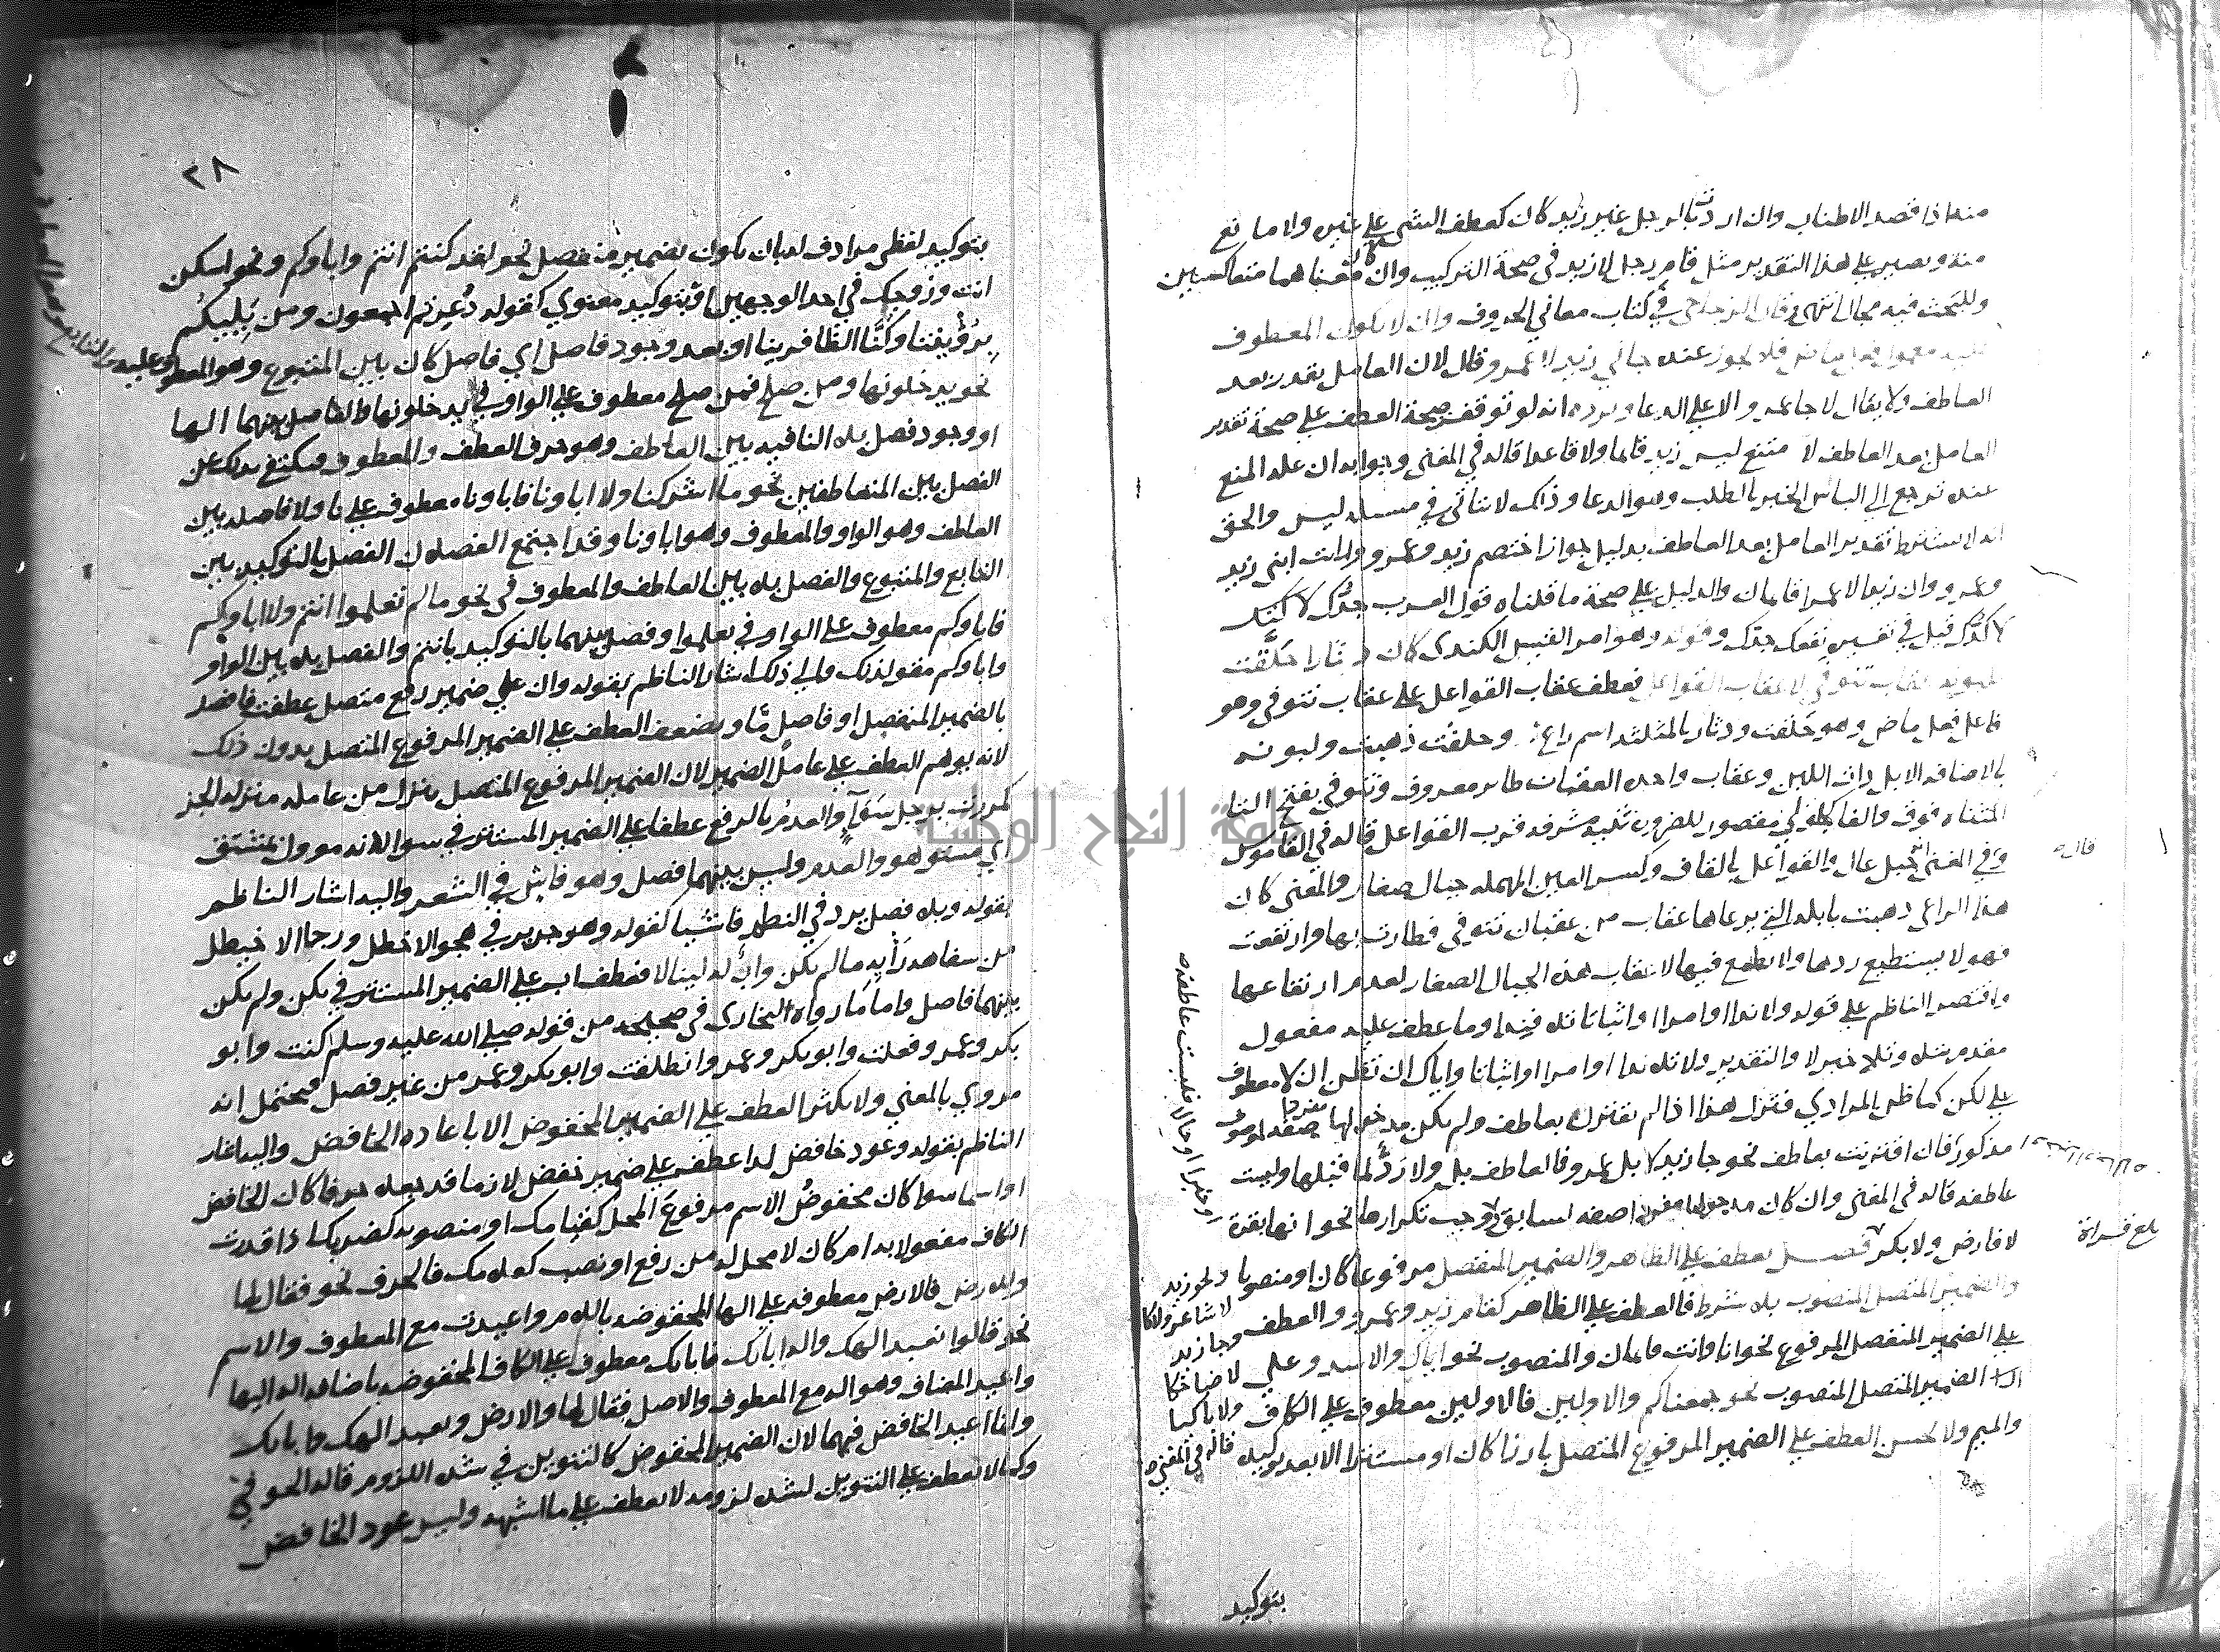 منه اذا قصد الاطناب وان اردت بالرجل غير زيد كان كعطف الشي على غيره ولا مانع
منه ويصير على هذا التقدير مثل قام رجل لا زيد في صحة التركيب وان كان معناهما متعاكسين
وللبحث فيه مجال انتهى وقال الزجاجي في كتاب معاني الحروف وان لا يكون المعطوف
عليه معمول فعل ماض فلا يجوز عنده جاني زيد لا عمرو قال لان العامل يقدر بعد
العاطف ولا يقال لا جا عمرو الا على الدعا ويرده انه لو توقف صحة العطف على صحة تقدير
العامل بعد العاطف لا متنع ليس زيد قايما ولا قاعدا قاله في المغني وجوابه ان علة المنع
عنده ترجع الى الباس الخبر بالطلب وهو الدعا وذلك لا يتاتى في مسئلة ليس والحق
انه لا يشترط تقدير العامل بعد العاطف بدليل جواز اختصم زيد وعمرو ورايت ابني زيد
وعمرو وان زيدا لا عمرا قايمان والدليل على صحة ما قلناه قول العرب جدك لا كدك
لا كدك قيل في تفسير نفعك جدك وقوله وهو امرا القيس الكندي كان دثارا حلقت
بلبونه عقاب تنوفي لا عقاب القواعل فعطف عقاب القواعل على عقاب تنوفي وهو
فاعل فعل ماض وهو حلقت ودثار بالمثلثة اسم راع وحلقت ذهبت ولبونه
بالاضافة الابل ذات اللبن وعقاب واحد العقبان طاير معروف وتنوفي بفتح التا
المثناه فوق والفا كجلولي مقصور للضرورة ثنية مشرفة قرب القواعل قاله في القاموس
وفي المغني جبل عال والقواعل بالقاف وكسر العين المهملة جبال صغار والمعنى كان
هذا الراعي ذهبت بابله التي يرعاها عقاب من عقبان تنوفي فطارت بها وارتفعت
فهو لا يستطيع ردها ولا يطمع فيها لا عقاب هذه الجبال الصغار لعدم ارتفاعها
واقتصر الناظم على قوله ولا ندا او امرا او اثباتا تلا فندا وما عطف عليه مفعول
مقدم بتلا وتلا خبر لا والتقدير ولا تلا ندا او امرا او اثباتا واياك ان تظن ان لا معطوف
على لكن كما ظن المرادي فتزل هذا اذا لم تقترن بعاطف ولم يكن مدخولها مفردا صفة لموصوف
مذكور فان اقترنت بعاطف نحو جا زيد لا بل عمرو فالعاطف بل ولا رد لما قبلها وليست
عاطفة قاله في المغني وان كان مدخولها مفردا صفة لسابق وجب تكرارها نحو انها بقرة
لا فارض ولا بكر فصل يعطف على الظاهر والضمير المنفصل مرفوعا كان او منصوبا
والضمير المتصل المنصوب بلا شرط فالعطف على الظاهر كقام زيد وعمرو والعطف
على الضمير المنفصل المرفوع نحو انا وانت قايمان والمنصوب نحو اياك والاسد وعلى
الضمير المتصل المنصوب نحو جمعناكم والاولين فالاولين معطوف على الكاف
والميم ولا يحسن العطف على الضمير المرفوع المتصل بارزا كان او مستترا الا بعد توكيده
بتوكيد
ونحو زيد
لا شاعر ولا كا
وجا زيد
لا ضاحكا
ولا باكيا
قاله في المغني
او خبرا او حالا فليست عاطفة
قاله
بلغ قراءة
٢٨
بتوكيد لفظي مرادف له بان يكون بضمير منفصل نحو لقد كنتم انتم واباوكم ونحو اسكن
انت وزوجك في احد الوجهين او بتوكيد معنوي كقوله ذعرتم اجمعون ومن يليكم
برؤيتنا وكنا الظافرينا او بعد وجود فاصل اي فاصل كان بين المتبوع وهو المعطوف عليه والتابع وهو المعطوف
نحو يدخلونها ومن صلح فمن صلح معطوف على الواو في يدخلونها والفاصل بينهما الها
او وجود فصل بلا النافية بين العاطف وهو حرف العطف والمعطوف فيكتفى بذلك عن
الفصل بين المتعاطفين نحو ما اشركنا ولا اباونا فاباونا معطوف على نا ولا فاصلة بين
العاطف وهو الواو والمعطوف وهو اباونا وقد اجتمع الفصلان الفصل بالتوكيد بين
التابع والمتبوع والفصل بلا بين العاطف والمعطوف في نحو ما لم تعلموا انتم ولا اباوكم
فاباوكم معطوف على الواو في تعلموا وفصل بينهما بالتوكيد بانتم والفصل بلا بين الواو
واباوكم مقولذلك والى ذلك اشار الناظم بقوله وان على ضمير رفع متصل عطفت فافصل
بالضمير المنفصل او فاصل مّا ويضعف العطف على الضمير المرفوع المتصل بدون ذلك
لانه يوهم العطف على عامل الضمير لان الضمير المرفوع المتصل ينزل من عامله منزلة الجز
كمررت برجل سوآءٍ والعدمُ بالرفع عطفا على الضمير المستتر في سوا لانه موول بمشتق
اي مستو هو والعدم وليس بينهما فصل وهو فاش في الشعر واليه اشار الناظم
بقوله وبلا فصل يرد في النظم فاشيا كقوله وهو جرير في هجو الاخطل ورجا الاخيطل
من سفاهة رأيه ما لم يكن واب له لينالا فعطف اب على الضمير المستتر في يكن ولم يكن
بينهما فاصل واما ما رواه البخاري في صحيحه من قوله صلى الله عليه وسلم كنت وابو
بكر وعمر وفعلت وابو بكر وعمر وانطلقت وابو بكر وعمر من غير فصل فيحتمل انه
مروي بالمعنى ولا يكثر العطف على الضمير المخفوض الا باعادة الخافض واليه اشار
الناظم بقوله وعود خافض لدا عطف على ضمير خفض لازما قد جعلا حرفا كان الخافض
او اسما سوا كان مخفوض الاسم مرفوع المحل كقيامك او منصوبه كضربك اذا قدرت
الكاف مفعولا به امر كان لا محل له من رفع او نصب فالحرف نحو فقال لها
وللارض فالارض معطوفة على الها المخفوضة باللام واعيدت مع المعطوف والاسم
نحو قالوا نعبد الهك واله اباىك فاباىك معطوف على الكاف المخفوضة باضافة اله اليها
واعيد المضاف وهو اله مع المعطوف والاصل فقال لها والارض ونعبد الهك واباىك
وانما اعيد الخافض فيهما لان الضمير المخفوض كالتنوين في شدة اللزوم قاله الحوفي
وكما لا يعطف على التنوين لشدة لزومه لا يعطف على ما اشبهه وليس عود الخافض
جامعة النجاح الوطنية